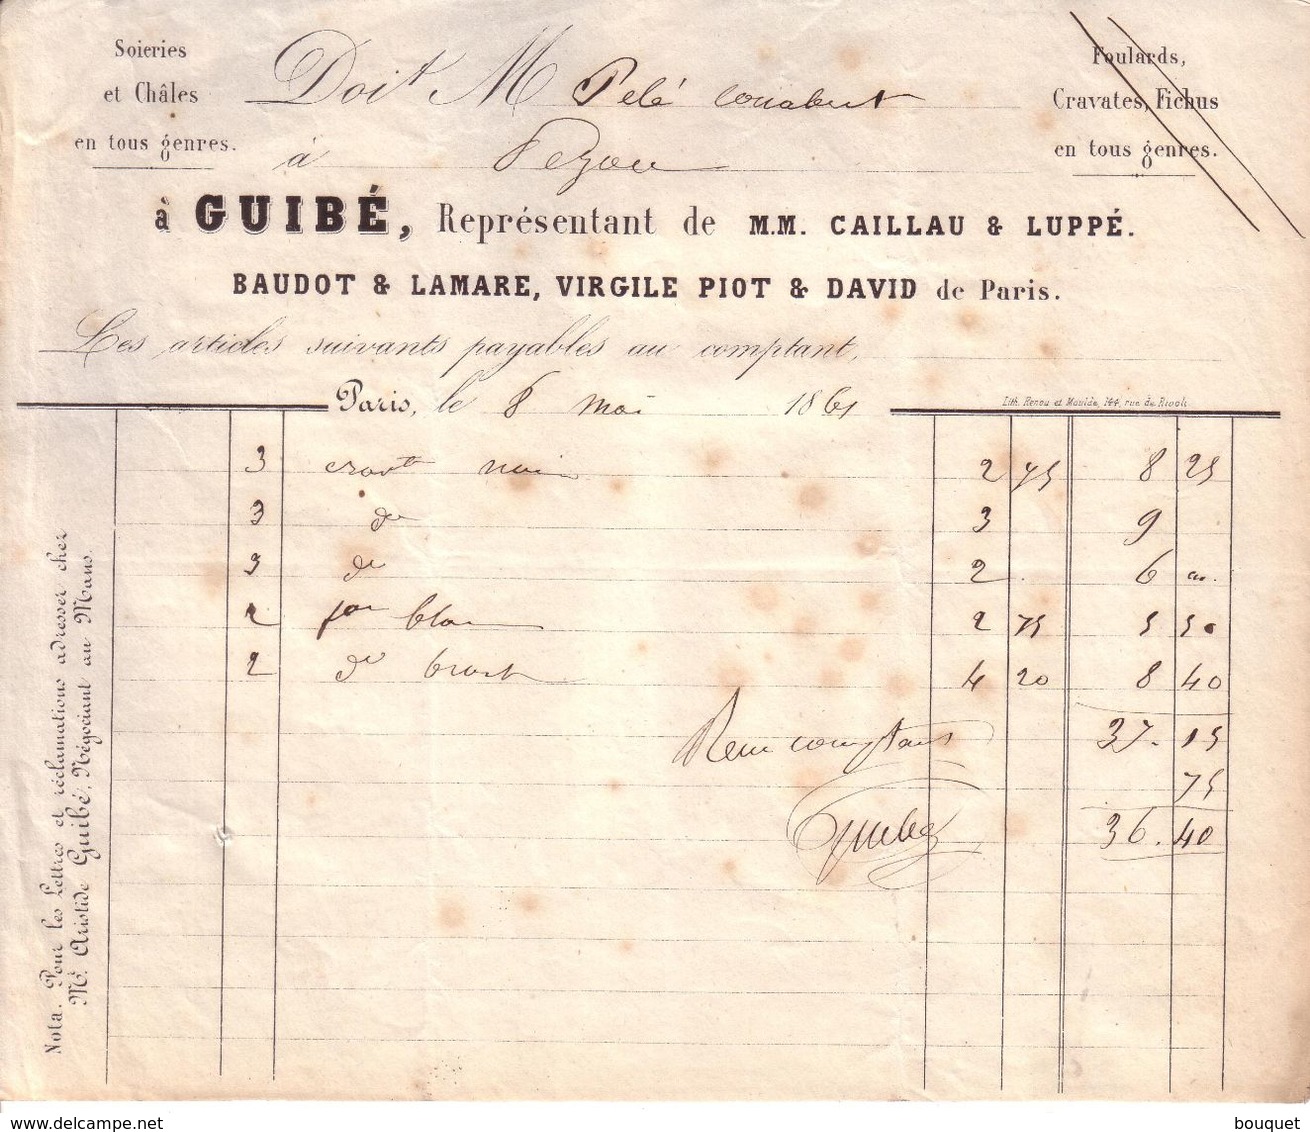 Soieries
et Châles
en tous genres.
Doit M Pelé
à Pezou
Foulards,
Cravates, Fichus
en tous genres.
à GUIBÉ, Représentant de M.M. CAILLAU & LUPPÉ.
BAUDOT & LAMARE, VIRGILE PIOT & DAVID de Paris.
Les articles suivants payables au comptant,
Paris, le 8 mai 1861
Lith. Renou et Maulde, 144, rue de Rivoli
3 cravte noir 2 75 8 25
3 do 3 9
3 do 2 6
2 blan 2 75 5 50
2 do 4 20 8 40
37.15
Reçu comptant
75
36.40
Guibé
Nota. Pour les Lettres et réclamations adresser chez
Mr. Aristide Guibé, Négociant au Mans.
bouquet
www.delcampe.net